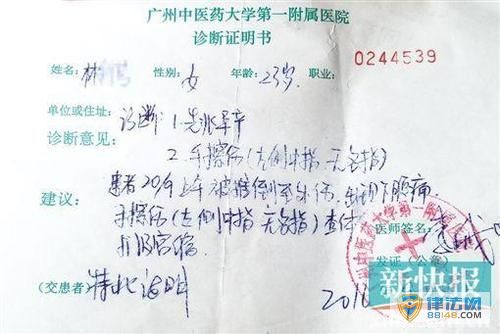 广州中医药大学第一附属医院
诊断证明书
0244539
姓名：林 性别：女 年龄：23岁 职业：
单位或住址：
诊断：1.先兆早产
诊断意见：
2.手擦伤(左侧中指 无名指)
建议：
患者20/9上午被推倒至外伤，出现下腹痛
手擦伤(左侧中指 无名指)查体
宫缩
医师签名：
发证（公章）
广州中医药大学第一附属医院
(交患者)
特此证明
201
新快报
律法网
88148.com